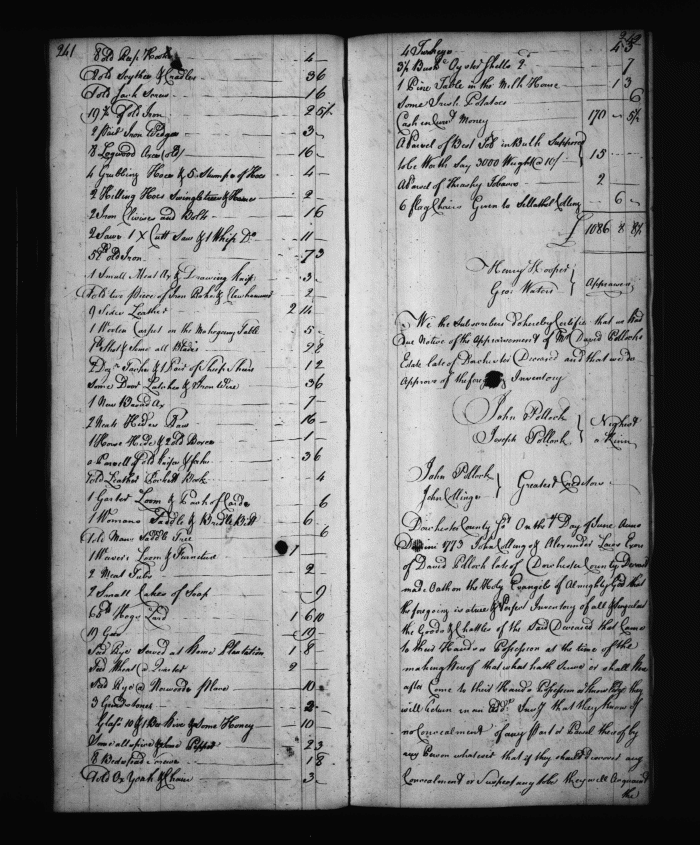 241
8 old Reap Hooks 4
2 old Scythes & Cradles 3 6
1 old Jack Screw 1 6
19 ½ ℔ old Iron 2 5½
2 Iron Wedges 3
8 Logwood Axes (old) 16
4 Grubbing Hoes & 5 Stumps of Hoes 4
2 Hilling Hoes Swingletrees & Hames 2
2 Iron Clivises and Bolts 1 6
2 Saws 1 X Cutt Saw & 1 Whip Do 11
52 old Iron 7 3
1 Small Meat Ax & Drawing Knife 3
1 old two piece of Iron & Clawhammer 2
9 Sides Leather 2 14
1 Woolen Carpet on the Mahogany Table 5
Shot & Some all Blades 2 8
& 1 Pair of Sheep Shears 1 2
Some Door Latches & Iron Wire 3 6
1 New Broad Ax 7
2 Neats Hides Raw 16
1 Horse Hide & 2 old Boxes 1
a Parcell of old Knifes & forks 3 6
1 old Leather Pockett Book 4
1 Garter Loom & Pack of Cards 6
1 Womans Saddle & Bridle Bitt 6
1 old Mans Saddle Tree 6
1 Weavers Loom & Furniture 1
2 Meat Tubs 2
2 Small Cakes of Soap 9
68 ℔ Hogs Lard 1 6 10
19 19
Seed Rye Sowed at Home Plantation 1 8
Seed Wheat @ 2
Seed Rye @ Norwoods Place 10
3 Grindstones 2
Glass & 1 Bee Hive & Some Honey 10
Some allspice & Some Pepper 2 3
8 Bedstead 1 8
1 old Ox Yoak & Chain 3
242
4 Turkeys 4 3
3½ Bushs Oyster Shells 7
1 Pine Table in the Milk House 1 3
Some Irish Potatoes 6
Cash in Curt Money 170 5½
A Parcel of Best Tobo in Bulk Supposed
to be Worth Say 3000 Weight @ 10/ 15
A Parcel of Trashy Tobacco 2
6 flag Chairs Given to Colling 6
£ 1086 8 8½
Henry Hooper
Geo: Waters
Appraisers
We the Subscribers do hereby Certifie that we Had
Due Notice of the Appraisement of Mr David Pollocks
Estate late of Dorchester Deceased and that we do
Approve of the foregoing Inventory
John Pollock
Joseph Pollock
Nighest
a Kinn
John Pollock
John Collings
Greatest Creditors
Dorchester County Sst. On the Day of June Anno
Domini 1773 John Collings & Alexander Laws Exors
of David Pollock late of Dorchester County Deceased
made Oath on the Holy Evangels of Almighty God that
the foregoing is a true & Perfect Inventory of all & singular
the Goods & Chattles of the Said Deceased that Came
to their Hands or Possession at the time of the
making thereof that what hath Since or shall Here
after Come to their Hands or Possession or Knowledge they
will Return in an that they Know of
no Concealment of any Part or Parcel thereof by
any Person whatever that if they should discover any
Concealment or Suspect any to be they will
the